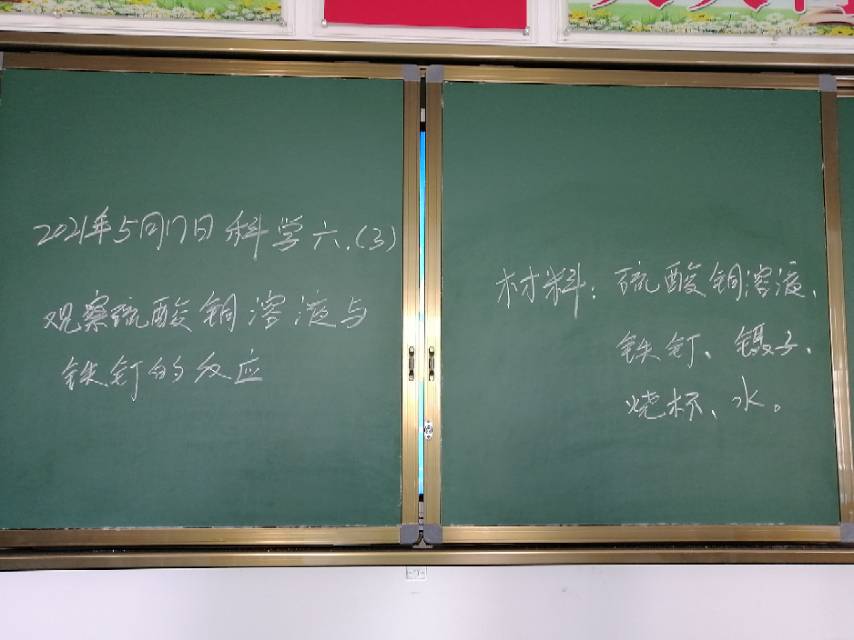 2021年5月17日科学六.(3)
观察硫酸铜溶液与
铁钉的反应
材料：硫酸铜溶液、
铁钉、镊子、
烧杯、水。